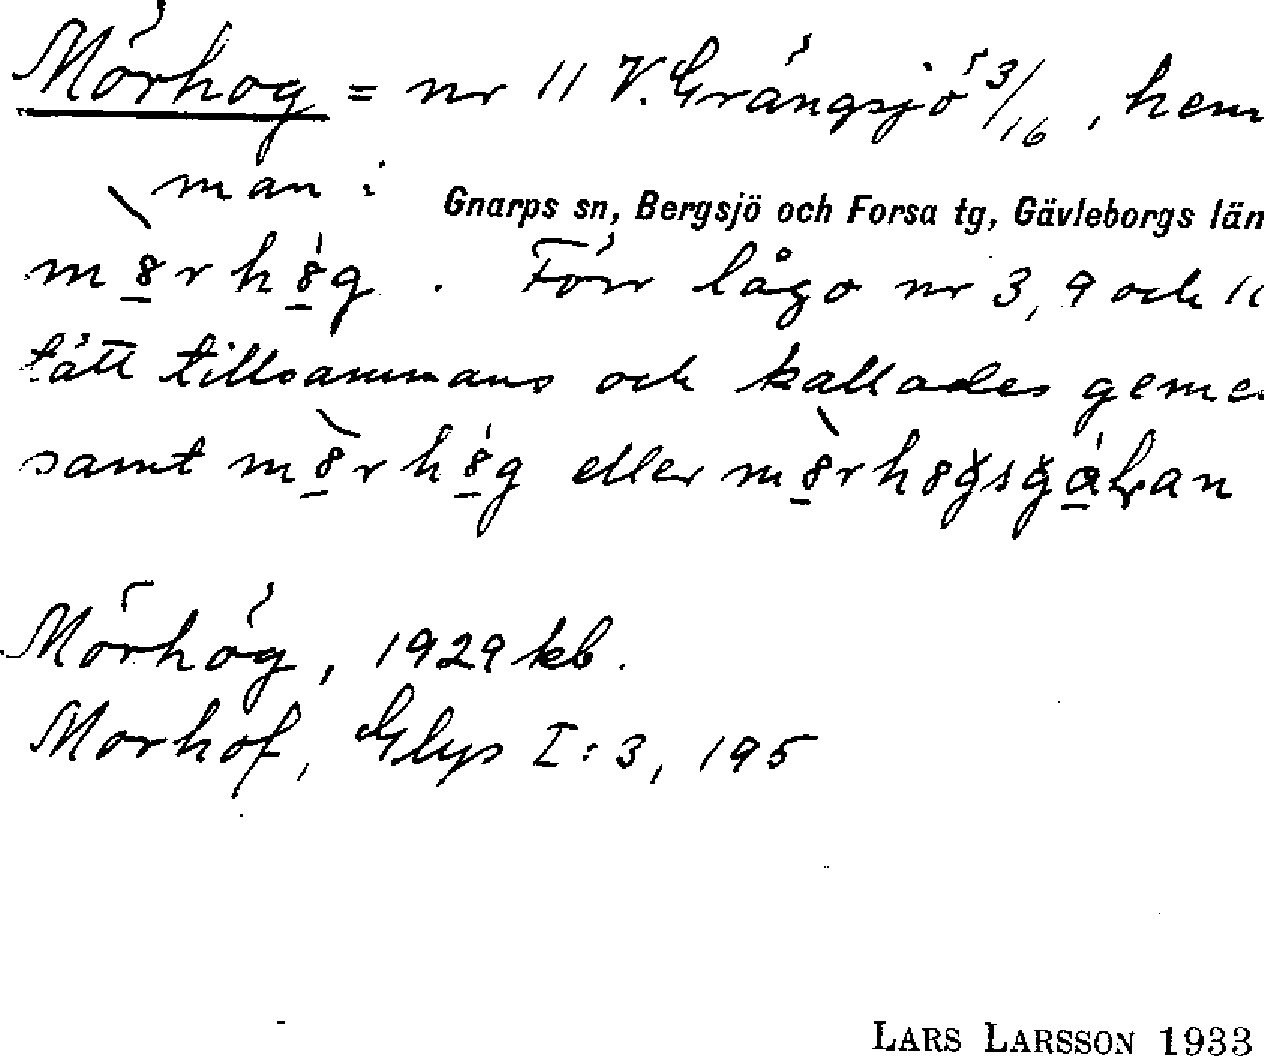 Mörhög = nr 11 V. Grängsjö 3/16, hem
man i
Gnarps sn, Bergsjö och Forsa tg, Gävleborgs län
Förr lågo nr 3, 9 och 11
tätt tillsammans och kallades geme
samt eller
Mörhög, 1929 kb.
Morhof, Glys I:3, 195
LARS LARSSON 1933